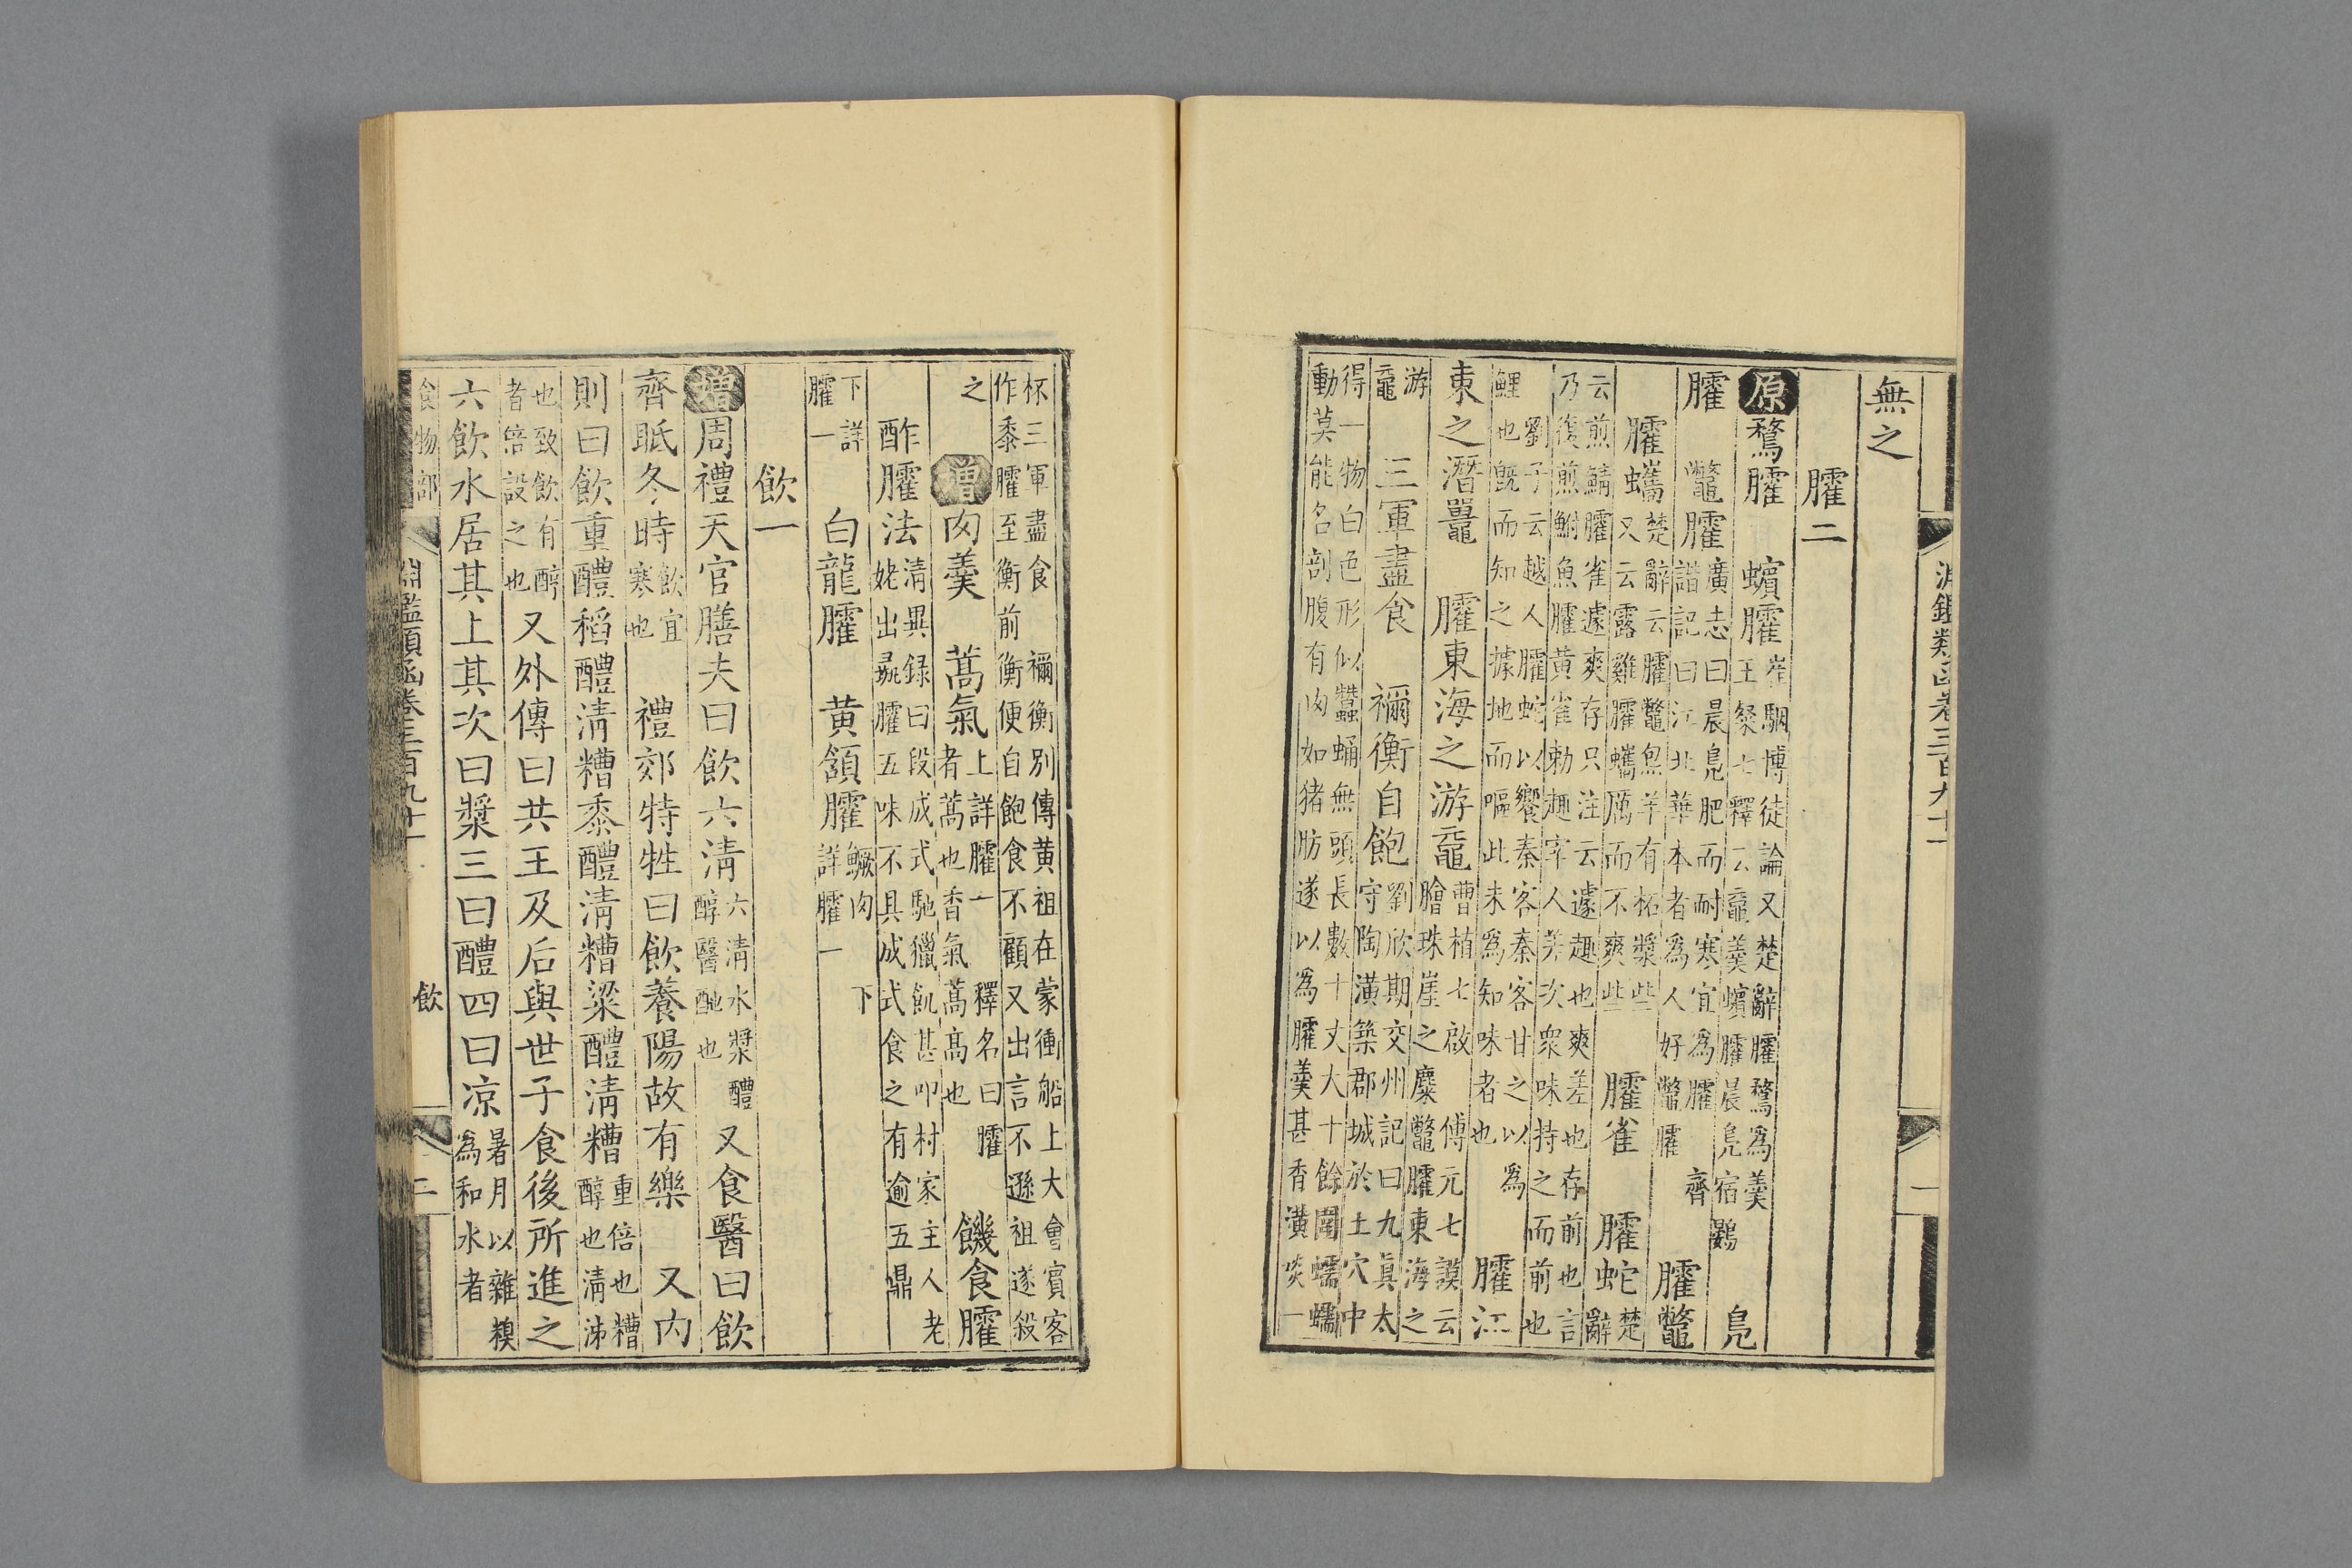 淵鑑類函卷三百九十一 一
無之
臛二
原鶩臛 蠙臛崔駰博徒論又楚辭臛鶩為羹王粲七釋云黿羹蠙臛晨鳧宿鷃 鳧
臛 鼈臛廣志曰晨鳧肥而耐寒宜為臛 齊諧記曰江北華本者為人好鼈臛 臛鼈
臛蠵楚辭云臛鼈炰羊有柘漿些又云露雞臛蠵厲而不爽些 臛雀 臛蛇楚辭
云煎鯖臛雀遽爽存只注云遽趣也爽差也存前也言乃復煎鮒魚臛黄雀勅趣宰人差次衆味持之而前也
劉子云越人臛蛇以饗秦客秦客甘之以為鯉也既而知之據地而嘔此未為知味者也 臛江
東之潛鼉 臛東海之游黿曹植七啟 傅元七謨云膾珠崖之麋鼈臛東海之
游黿 三軍盡食 禰衡自飽劉欣期交州記曰九真太守陶潢築郡城於土穴中
得一物白色形似蠶蛹無頭長數十丈大十餘圍蠕蠕動莫能名剖腹有肉如猪肪遂以為臛羹甚香潢啖一
杯三軍盡食 禰衡別傳黄祖在蒙衝船上大會賓客作黍臛至衡前衡便自飽食不顧又出言不遜祖遂殺
之 增肉羹 蒿氣上詳臛一 釋名曰臛者蒿也香氣蒿蒿也 饑食臛
酢臛法清異録曰段成式馳獵飢甚叩村家主人老姥出彘臛五味不具成式食之有逾五鼎
下詳臛一 白龍臛 黄頷臛鱖肉 下詳臛一
飲一
增周禮天官膳夫曰飲六清六清水漿醴醇醫酏也 又食醫曰飲
齊眡冬時飲宜寒也 禮郊特牲曰飲養陽故有樂 又内
則曰飲重醴稻醴清糟黍醴清糟粱醴清糟重倍也糟醇也清沛
也致飲有醇者倍設之也 又外傳曰共王及后與世子食後所進之
六飲水居其上其次曰漿三曰醴四曰凉暑月以雜糗為和水者
食物部 淵鑑類函卷三百九十一 飲 二